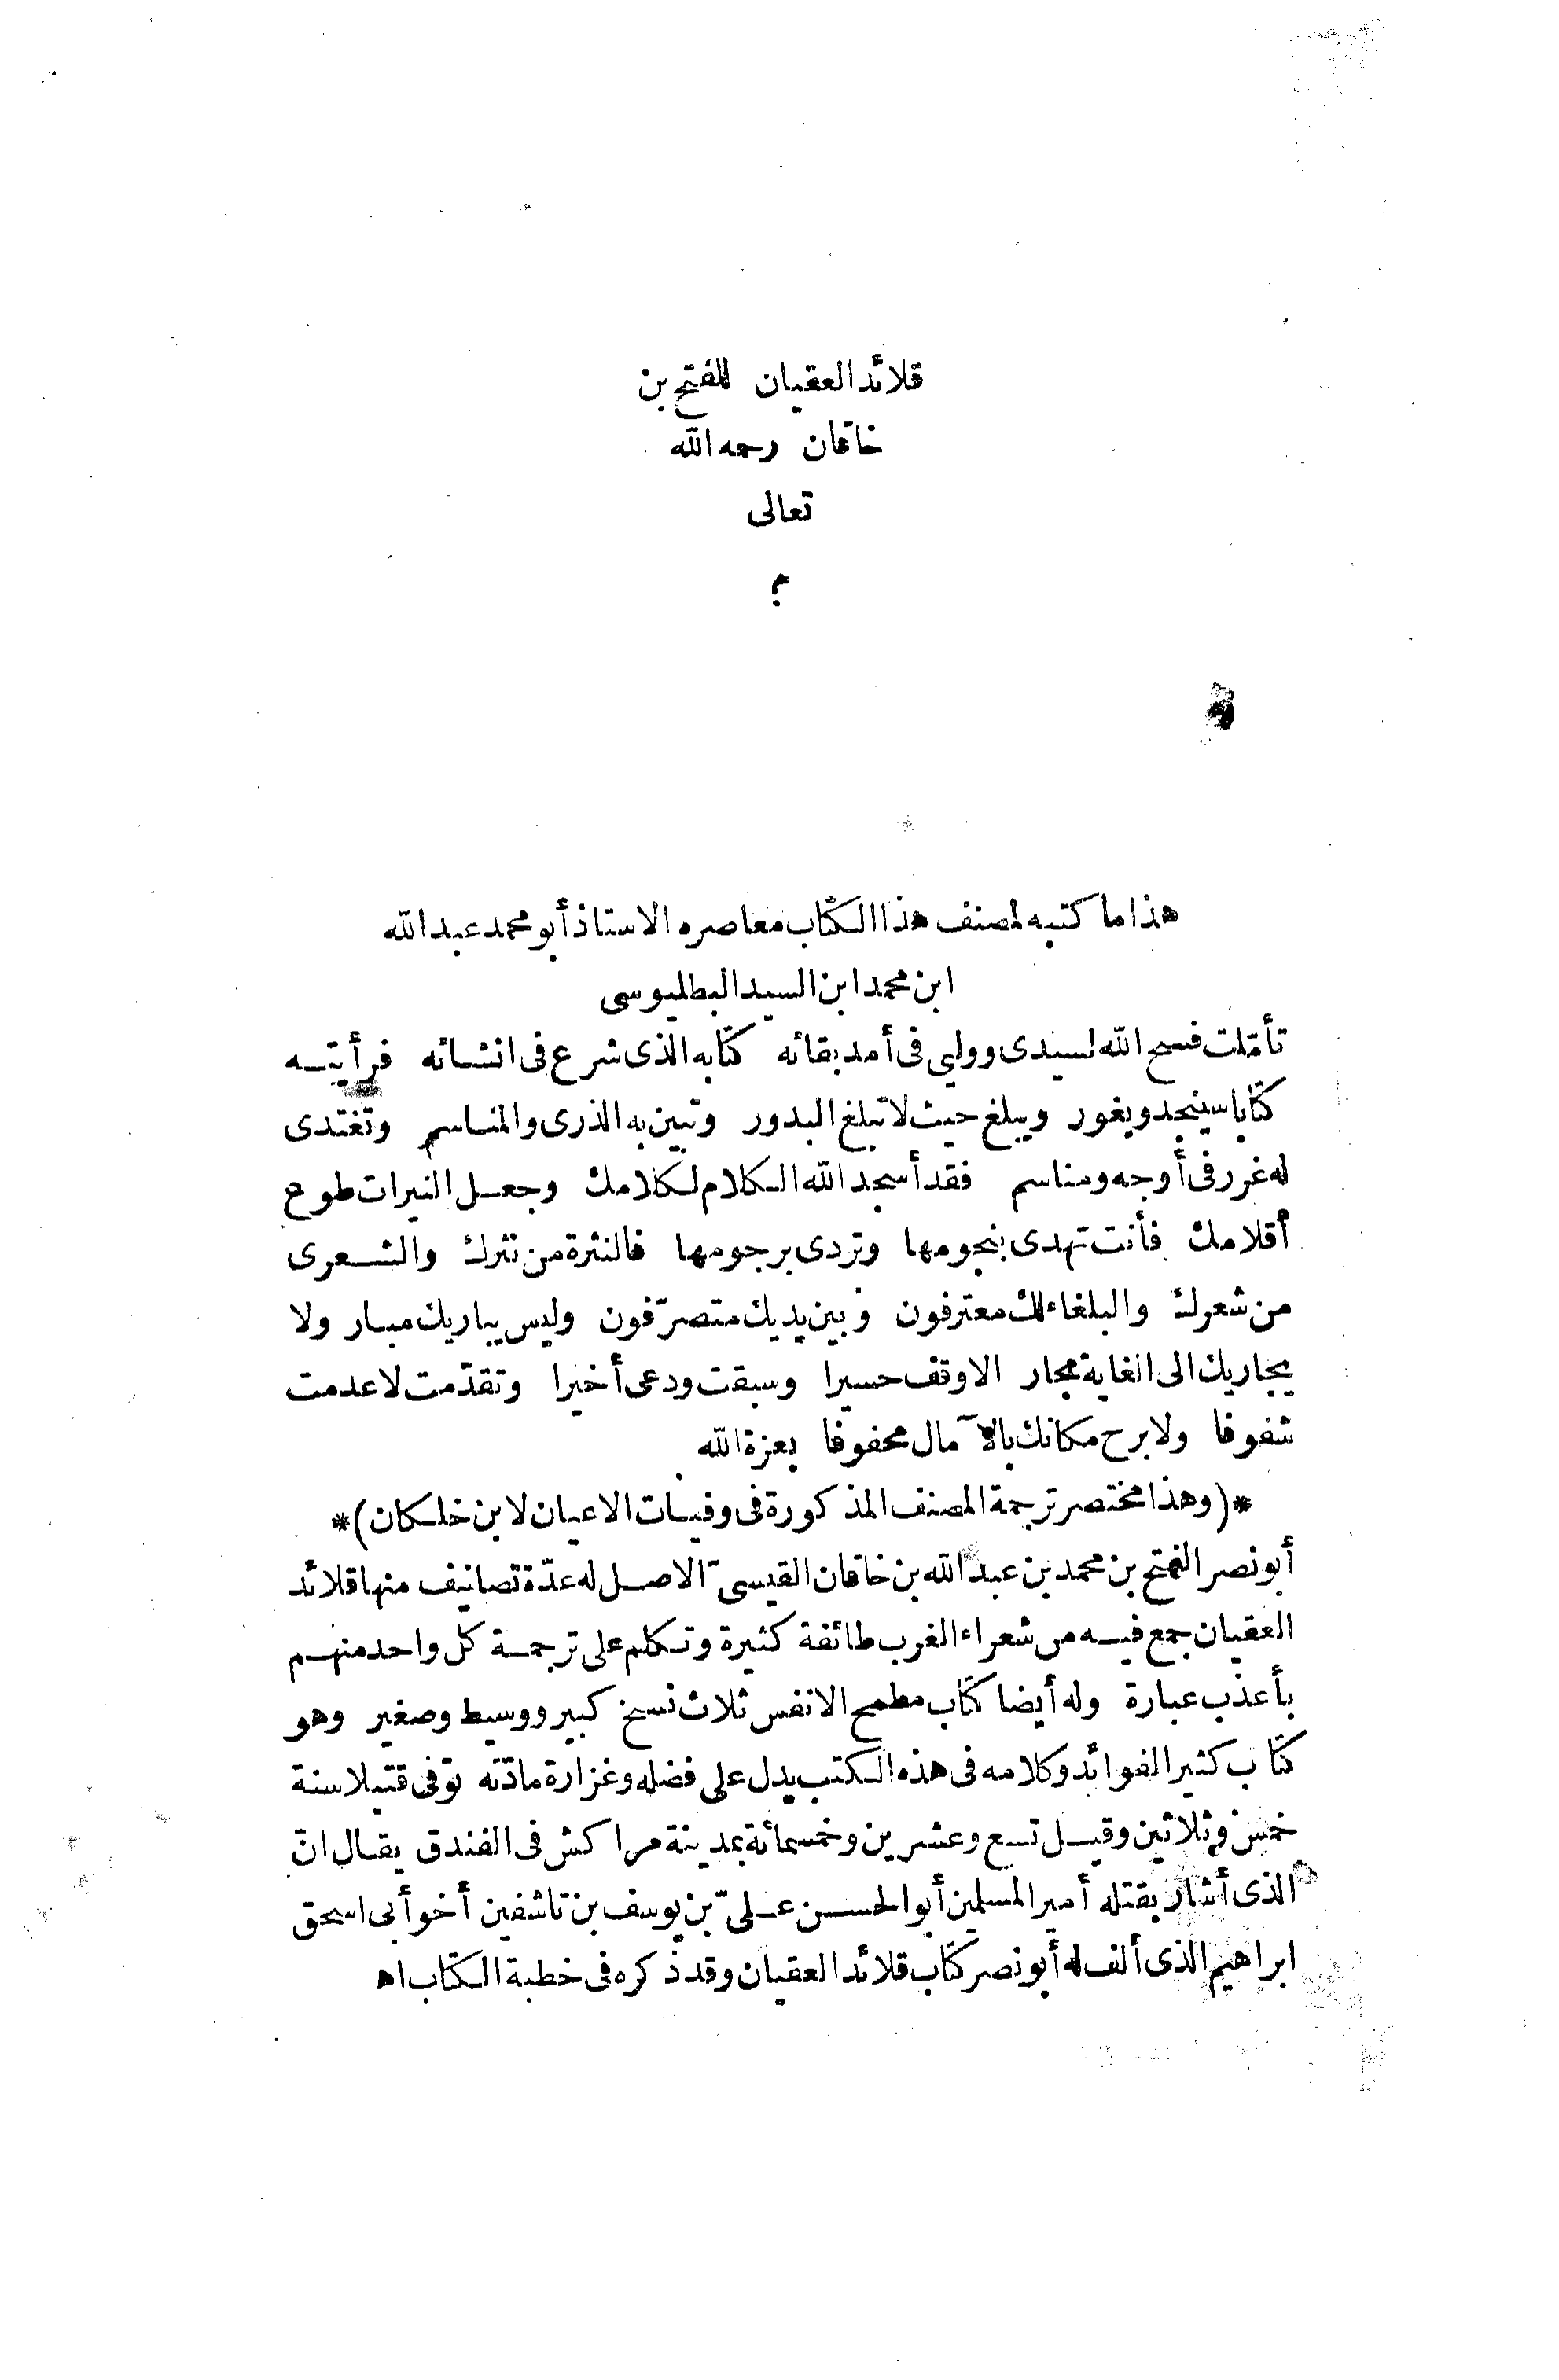 قلائد العقيان للفتح بن
خاقان رحمه الله
تعالى
م
هذا ما كتبه لمصنف هذا الكتاب معاصره الاستاذ أبو محمد عبد الله
ابن محمد ابن السيد البطليوسى
تأمّلت فسح الله لسيدى ووليى فى أمد بقائه كتابه الذى شرع فى انشائه فرأيته
كتابا سينجد ويغور ويبلغ حيث لا تبلغ البدور وتبين به الذرى والمناسم وتغتدى
له غرر فى أوجه ومناسم فقد أسجد الله الكلام لكلامك وجعل النيرات طوع
أقلامك فأنت تهدى بنجومها وتردى برجومها فالنثرة من نثرك والشعرى
من شعرك والبلغاء لك معترفون وبين يديك متصرّفون وليس يباريك مبار ولا
يجاريك الى الغاية مجار الا وقف حسيرا وسبقت ودعى أخيرا وتقدّمت لا عدمت
شفوفا ولا برح مكانك بالآمال محفوفا بعزة الله
*(وهذا مختصر ترجمة المصنف المذكورة فى وفيات الاعيان لابن خلكان)*
أبو نصر الفتح بن محمد بن عبد الله بن خاقان القيسىّ الاصل له عدّة تصانيف منها قلائد
العقيان جمع فيه من شعراء الغرب طائفة كثيرة وتكلم على ترجمة كل واحد منهم
بأعذب عبارة وله أيضا كتاب مطمح الانفس ثلاث نسخ كبير ووسيط وصغير وهو
كتاب كثير الفوائد وكلامه فى هذه الكتب يدل على فضله وغزارة مادّته توفى قتيلا سنة
خمس وثلاثين وقيل تسع وعشرين وخمسمائة بمدينة مراكش فى الفندق يقال انّ
الذى أشار بقتله أمير المسلمين أبو الحسن علىّ بن يوسف بن تاشفين أخو أبى اسحق
ابراهيم الذى ألف له أبو نصر كتاب قلائد العقيان وقد ذكره فى خطبة الكتاب اه